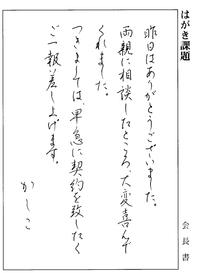 はがき課題
昨日はありがとうございました。
両親に相談したところ、大変喜んで
くれました。
つきましては、早急に契約を致したく
ご一報差し上げます。
かしこ
会長書